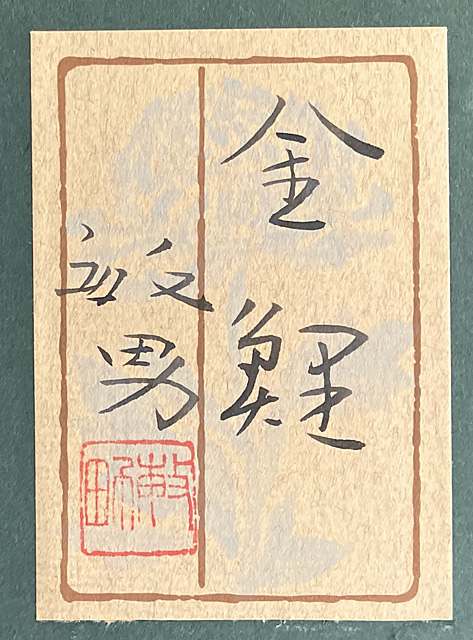 金鯉
敏男